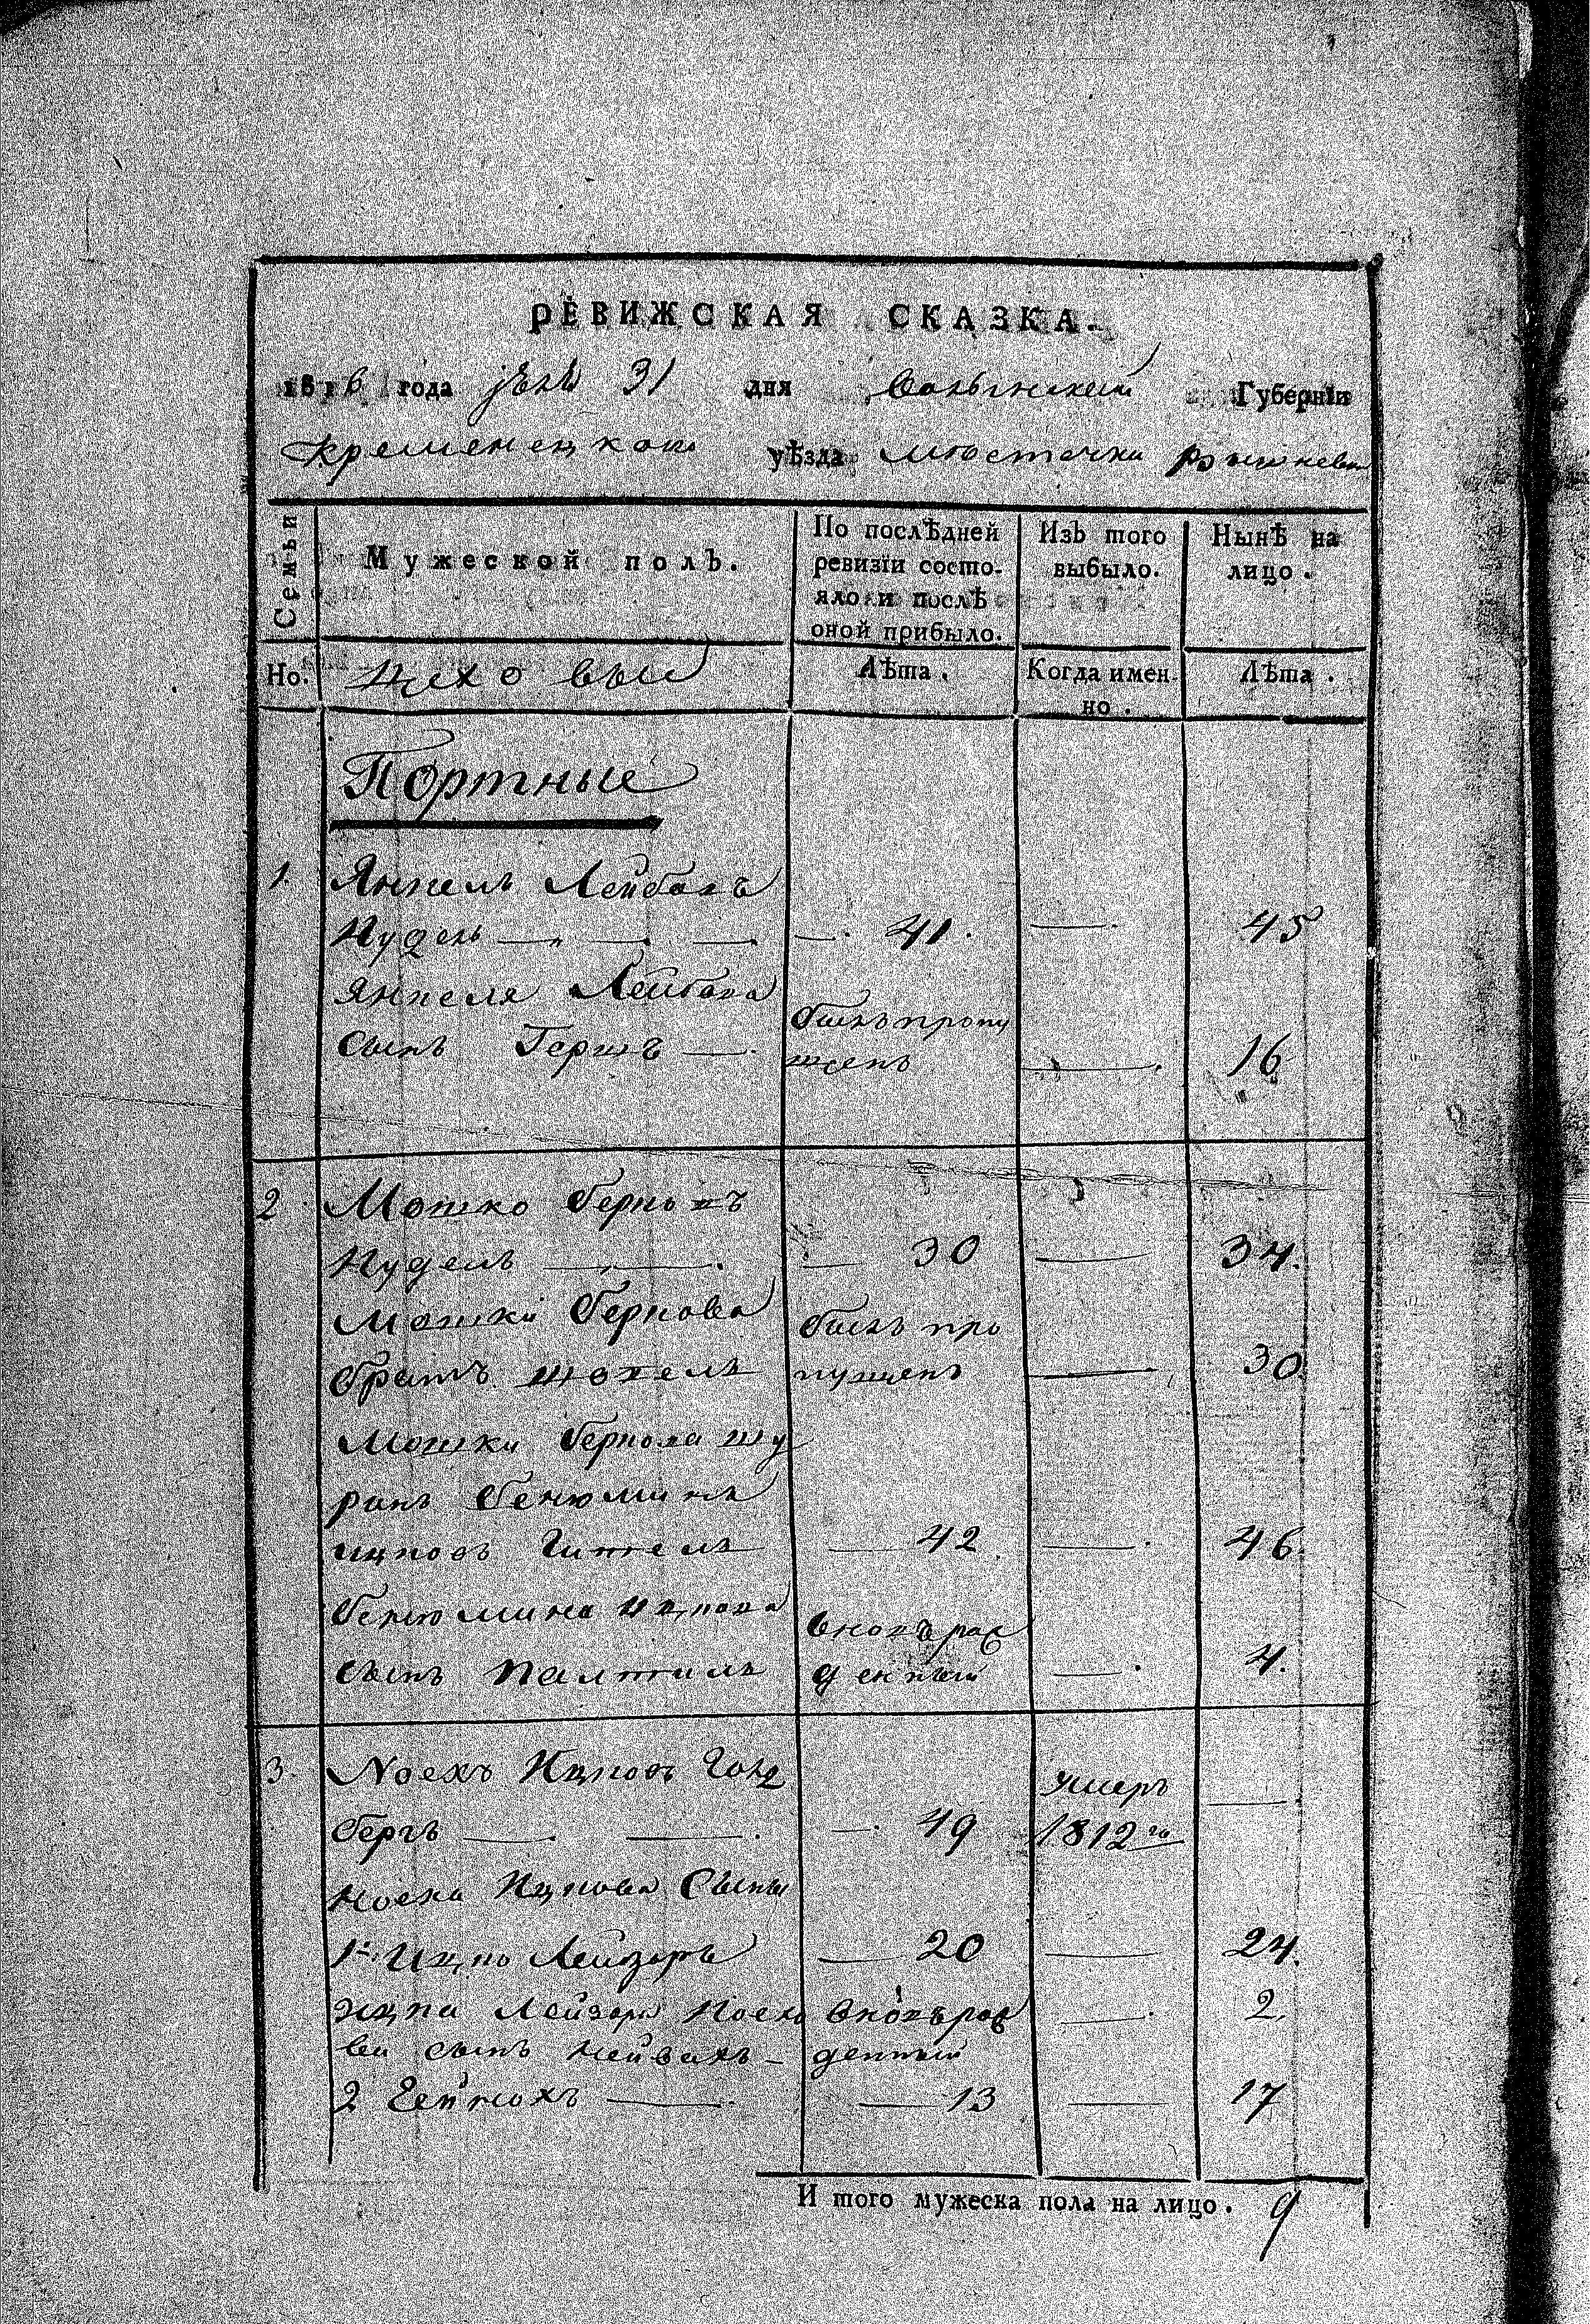 РЕВИЖСКАЯ СКАЗКА.
1816 года 31 дня Волынской Губернїи
Кременецкого уѣзда местечка Вишневца
Семьи
Мужеской полъ.
По послѣдней ревизїи состояло и послѣ оной прибыло.
Изъ того выбыло.
Нынѣ на лицо.
Но.
Цеховые
Лѣта.
Когда именно.
Лѣта.
Портные
1. Янкель Лейбовъ
Нудель — 41. — 45
Янкеля Лейбова
Сынъ Гершъ — былъ пропущенъ — 16
2 Мошко Берковъ
Нудель — 30 — 34.
Мошки Беркова
братъ — былъ пропущенъ — 30
Мошки Беркова шу
ринъ Бенюминъ
Ицковъ — 42 — 46.
Бенюмина Ицкова
сынъ — вновъ рожденный — 4.
3. Ноехъ Ицковъ Голд
бергъ — 49 умеръ 1812го —
Ноеха Ицкова Сыны
1й Ицко Лейзоръ — 20 — 24.
Ицка Лейзора Ноехо вновъ рож — 2.
ва сынъ — денный
2 — 13 — 17
И того мужеска пола на лицо. 9